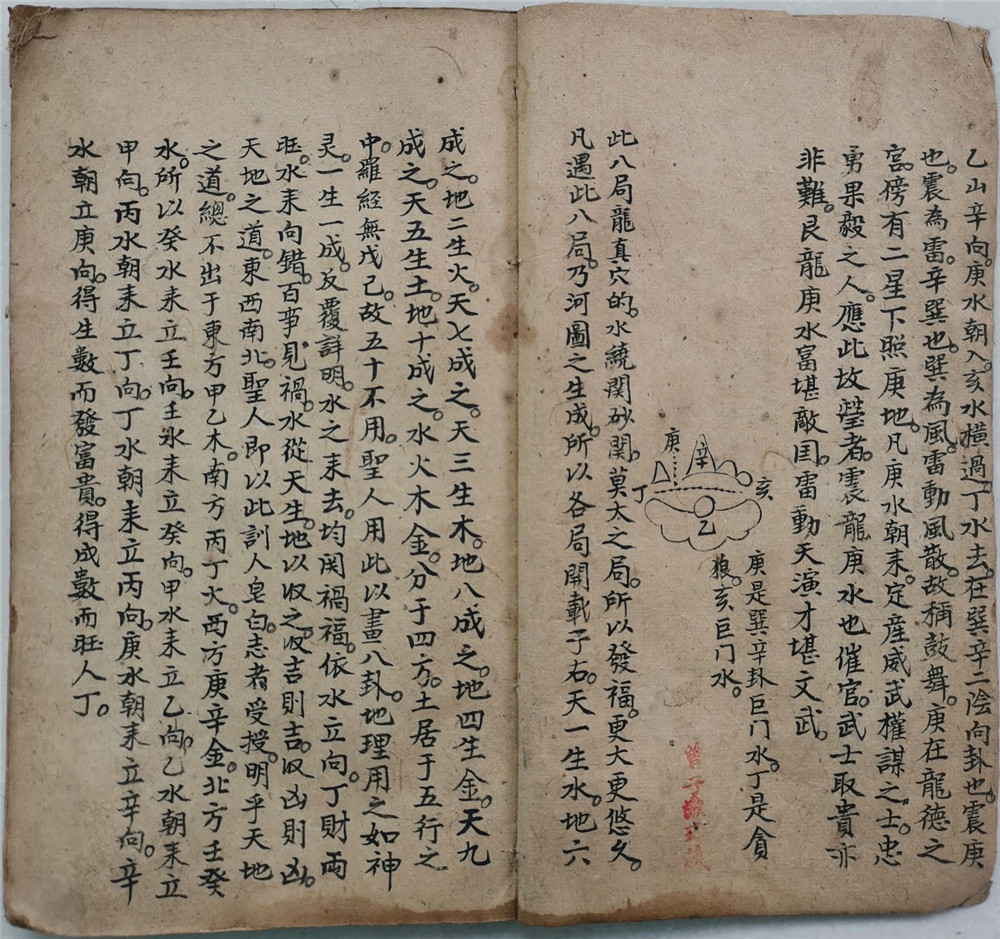 乙山辛向。庚水朝入。亥水横過。丁水去。在巽辛二隂向卦也。震庚
也。震為雷。辛巽也。巽為風。雷動風散。故稱鼓舞。庚在龍德之
宫。傍有二星下照庚地。凡庚水朝耒。定産威武權謀之士。忠
勇果毅之人。應此故瑩者。震龍庚水也催官。武士取貴亦
非難。艮龍庚水富堪敵囯。雷動天演才堪文武。
庚
辛
亥
丁
乙
庚是巽辛卦巨门水。丁是貪
狼。亥巨门水。
此八局龍真穴的。水繞関砂関。莫大之局。所以發福。更大更悠久。
凡遇此八局。乃河圖之生成。所以各局開載于右。天一生水。地六
成之。地二生火。天七成之。天三生木。地八成之。地四生金。天九
成之。天五生土。地十成之。水火木金。分于四方。土居于五行之
中。羅經無戊己。故五十不用。聖人用此以畫八卦。地理用之如神
灵。一生一成。反覆詳明。水之耒去。均関禍福。依水立向。丁財両
旺。水耒向錯。百亊見禍。水從天生。地以収之。収吉則吉。収凶則凶。
天地之道。東西南北。聖人即以此訓人皂白。志者受授。明乎天地
之道。總不出于東方甲乙木。南方丙丁火。西方庚辛金。北方壬癸
水。所以癸水耒立壬向。壬水耒立癸向。甲水耒立乙向。乙水朝耒立
甲向。丙水朝耒立丁向。丁水朝耒立丙向。庚水朝耒立辛向。辛
水朝立庚向。得生數而發富貴。得成數而旺人丁。